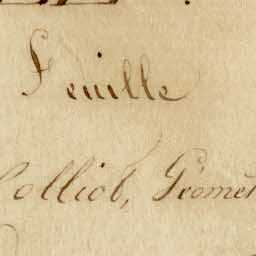 Feuille
Colliot, Géomèt